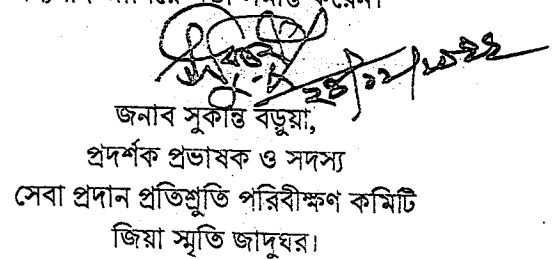 ২৪/১২/২০২২
জনাব সুকান্ত বড়ুয়া,
প্রদর্শক প্রভাষক ও সদস্য
সেবা প্রদান প্রতিশ্রুতি পরিবীক্ষণ কমিটি
জিয়া স্মৃতি জাদুঘর।